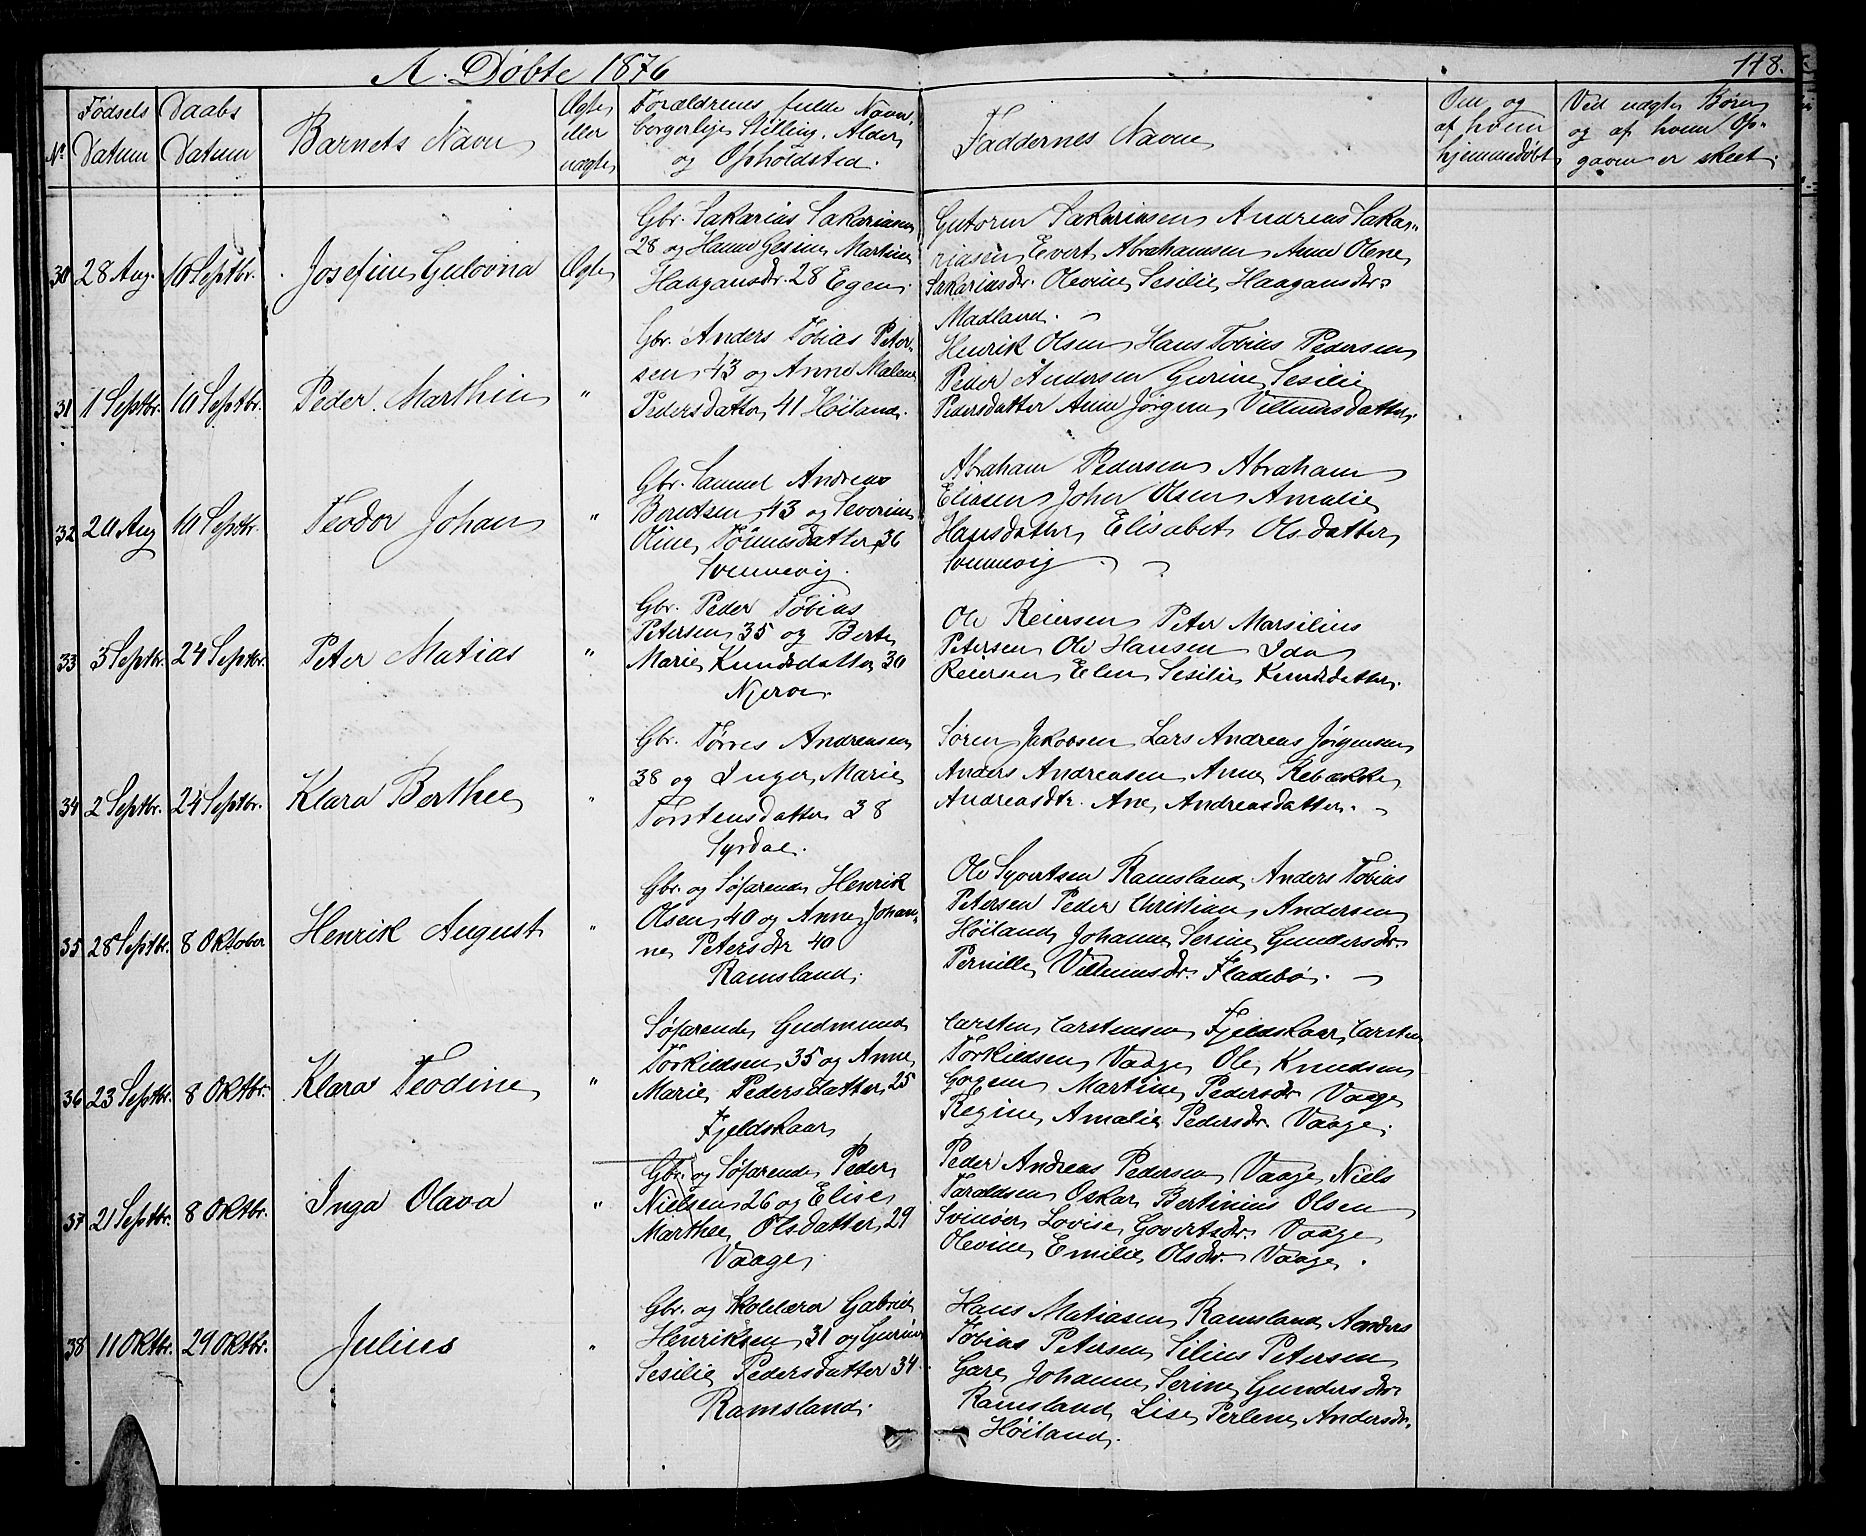 A. Døbte 1876
118.
Nr.
Fødsels Datum
Daabs Datum
Barnets Navn
Ægte eller uægte
Forældrenes fulde Navn,
borgerlige Stilling, Alder
og Opholdsted.
Faddernes Navne
Om og
af hvem
hjemmedøbt
Ved uægte Børn
og af hvem Op-
gaven er skeet.
30 28 Aug. 10 Septbr. Josefine Gulovina Ægte
Gbr. Sakarias Sakariasen
28 og Hanne Gesine Martine
Haagansdr. 28 Egen.
Gutorm Sakariasen Andreas Saka-
riasen Evert Abrahamsen Anne Olene
Sakariasdr. Olevine Sesilie Haagansdr.
Madland.
31 1 Septbr. 10 Septbr. Peder Marthin "
Gbr. Anders Tobias Peter-
sen 43 og Anne Malene
Pedersdatter 41 Høiland.
Henrik Olsen Hans Tobias Pedersen
Peder Andersen Gurine Sesilie
Pedersdatter Anne Jørgine Villumsdatter.
32 20 Aug 10 Septbr. Teodor Johan "
Gbr. Samuel Andreas
Berntsen 43 og Severine
Oline Tønnesdatter 36
Svennevig.
Abraham Pedersen Abraham
Eliasen John Olsen Amalie
Hansdatter Elisabet Olsdatter
Svennevig
33 3 Septbr. 24 Septbr. Peter Matias "
Gbr. Peder Tobias
Petersen 35 og Berte
Marie Knudsdatter 30
Njerve.
Ole Reiersen Peter Marsilius
Petersen Ole Hansen Ida
Reiersen Elen Sesilie Knudsdatter.
34 2 Septbr. 24 Septbr. Klara Berthee "
Gbr. Tørres Andreasen
38 og Inger Marie
Torstensdatter 38
Syrdal.
Søren Jakobsen Lars Andreas Jørgensen
Anders Andreasen Anne Rebække
Andreasdtr. Ane Andreasdatter.
35 28 Septbr. 8 Oktober Henrik August "
Gbr. og Søfarende Henrik
Olsen 40 og Anne Johan-
ne Petersdr 40
Ramsland.
Ole Syvertsen Ramsland Anders Tobias
Petersen Peder Christian Andersen
Høiland Johanne Serine Gundersdr.
Pernille Villumsdr. Fladebø.
36 23 Septbr. 8 Oktbr. Klara Teodine "
Søfarende Gudmund
Torkildsen 35 og Anne
Marie Pedersdatter 25
Fjeldskaar
Carsten Carstensen Fjeldskaar Carsten
Torkildsen Vaage Ole Knudsen
Martine Pedersdr Vaage
Regine Amalie Pedersdr. Vaage.
37 21 Septbr. 8 Oktbr. Inga Olava "
Gbr. og Søfarende Peder
Nielsen 26 og Elise
Marthee Olsdatter 29
Vaage
Peder Andreas Pedersen Vaage Niels
Taraldsen Oskar Bertinius Olsen
Svinøer Lovise Govertsdr. Vaage
Olevine Emilie Olsdr. Vaage.
38 11 Oktbr. 29 Oktbr. Julius "
Gbr. og Skolelærer Gabriel
Henriksen 31 og Gurine
Sesilie Pedersdatter 34.
Ramsland.
Hans Matiasen Ramsland Anders
Tobias Petersen Silius Petersen
Gare Johanne Serine Gundersdr.
Ramsland Lise Perlene Andersdr.
Høiland.